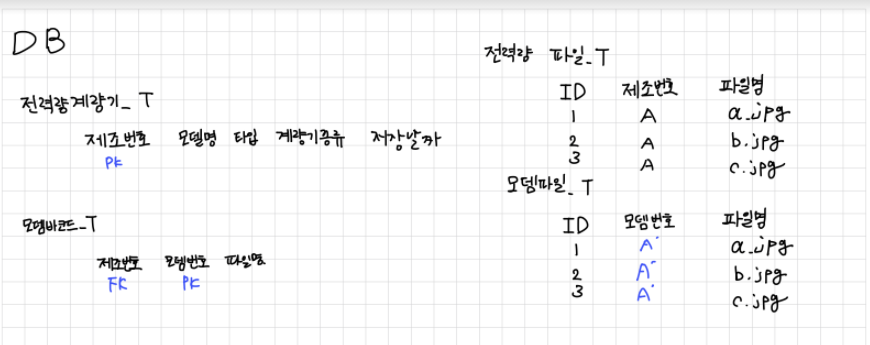 DB
전력량계량기_T
제조번호 모델명 타입 계량기종류 저장날짜
PK
모뎀바코드_T
제조번호 모뎀번호 파일명
FK PK
전력량 파일_T
ID 제조번호 파일명
1 A a.jpg
2 A b.jpg
3 A c.jpg
모뎀파일_T
ID 모뎀번호 파일명
1 A' a.jpg
2 A' b.jpg
3 A' c.jpg